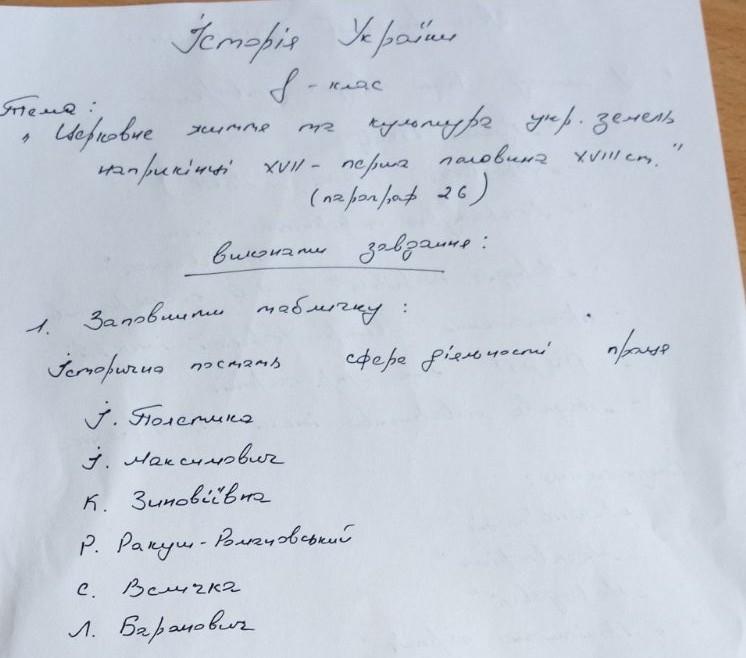 Історія України
8 - клас
Тема:
„ Церковне життя та культура укр. земель
наприкінці XVII - перша половина XVIII ст.”
(параграф 26)
виконати завдання:
1. Заповнити табличку:
Історична постать сфера діяльності праця
І. Полетика
І. Максимович
К. Зиновіївна
Р. Ракуш-Романовський
С. Величка
Л. Баранович